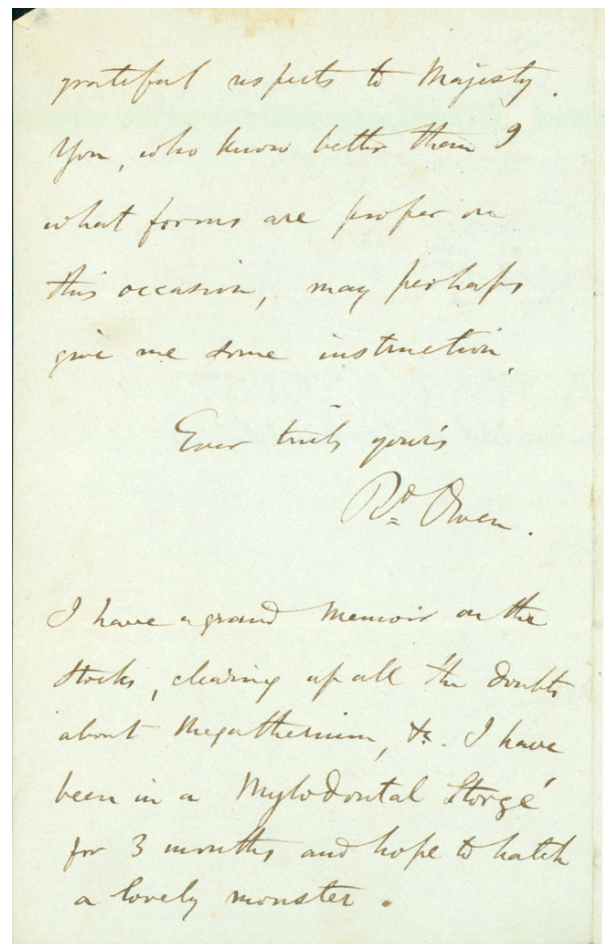 grateful respects to Majesty.
You, who know better than I
what forms are proper on
this occasion, may perhaps
give me some instruction.
Ever truly your's
Rd Owen.
I have a grand Memoir on the
Stocks, clearing up all the doubts
about Megatherium, &c. I have
been in a Mylodontal Storgé
for 3 months and hope to hatch
a lovely monster.